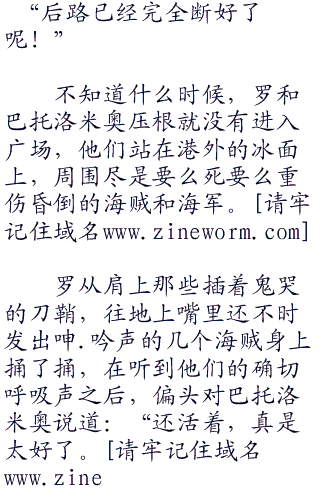 “后路已经完全断好了
呢！”
不知道什么时候，罗和
巴托洛米奥压根就没有进入
广场，他们站在港外的冰面
上，周围尽是要么死要么重
伤昏倒的海贼和海军。[请牢
记住域名www.zineworm.com]
罗从肩上那些插着鬼哭
的刀鞘，往地上嘴里还不时
发出呻.吟声的几个海贼身上
捅了捅，在听到他们的确切
呼吸声之后，偏头对巴托洛
米奥说道：“还活着，真是
太好了。[请牢记住域名
www.zine